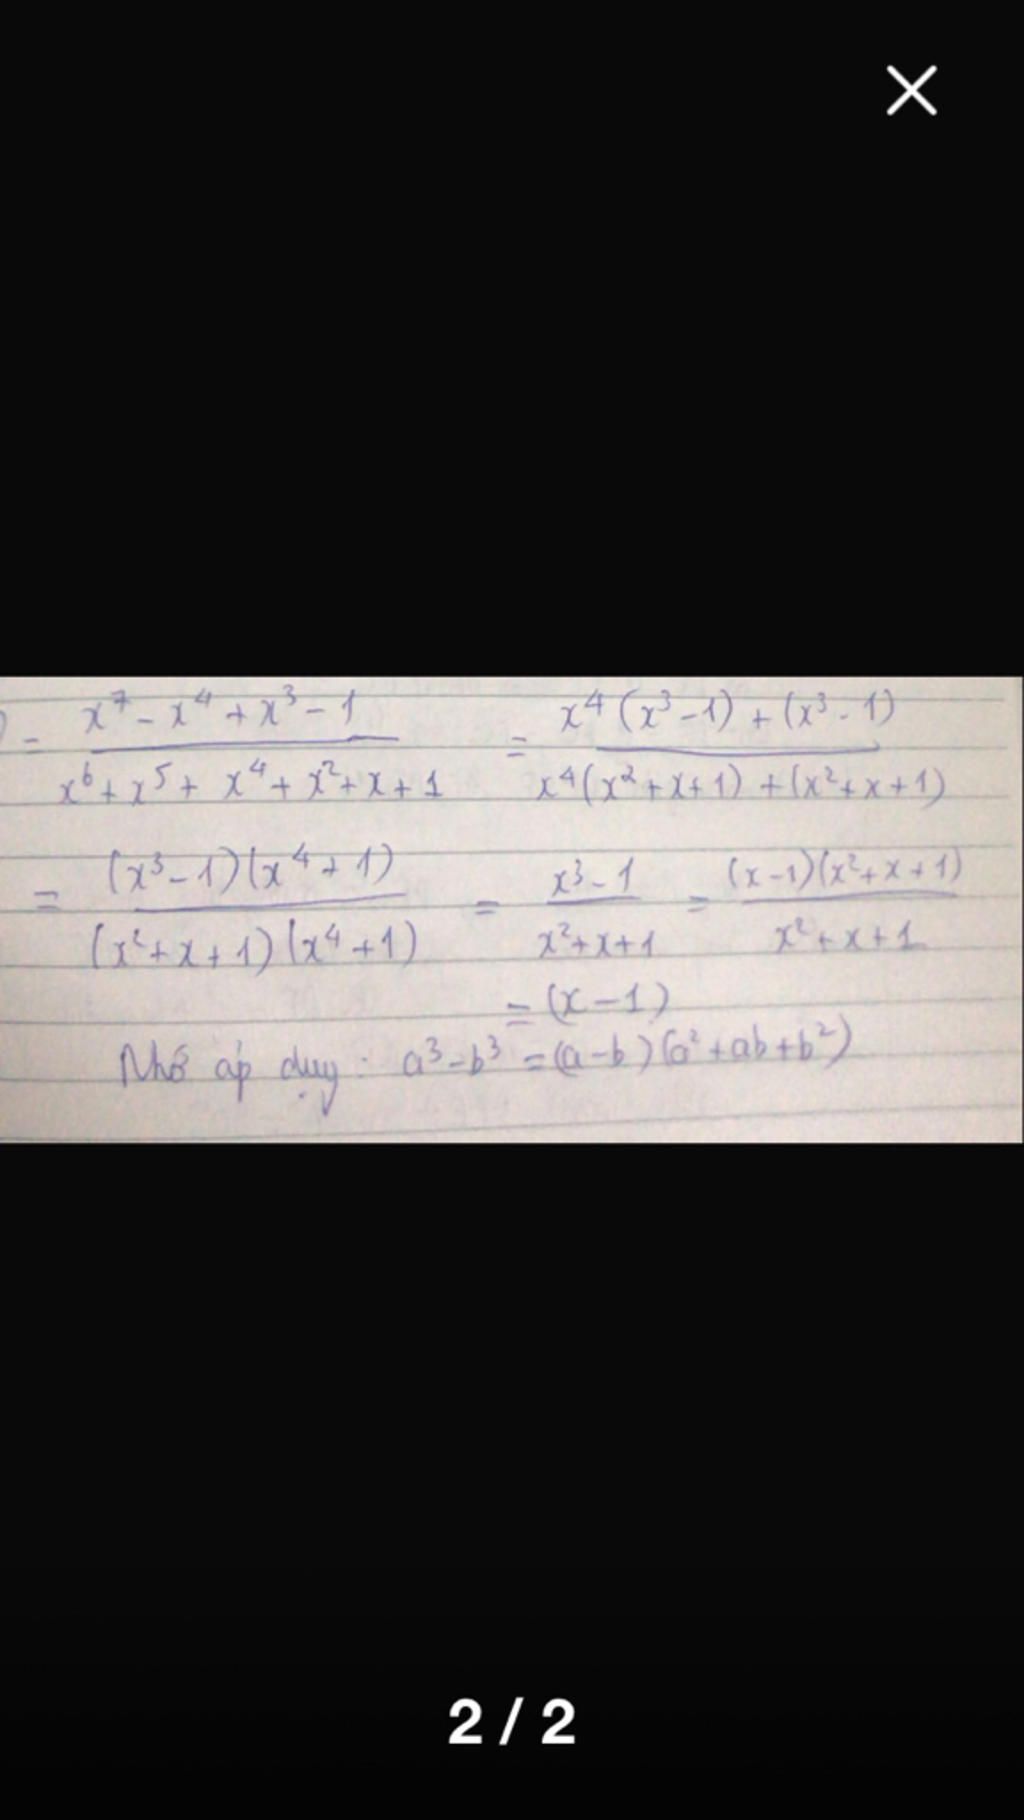 = x⁷ - x⁴ + x³ - 1 / x⁶ + x⁵ + x⁴ + x² + x + 1 = x⁴(x³ - 1) + (x³ - 1) / x⁴(x² + x + 1) + (x² + x + 1)
= (x³ - 1)(x⁴ + 1) / (x² + x + 1)(x⁴ + 1) = x³ - 1 / x² + x + 1 = (x - 1)(x² + x + 1) / x² + x + 1
= (x - 1)
Nhớ áp dụg : a³ - b³ = (a - b)(a² + ab + b²)
2 / 2